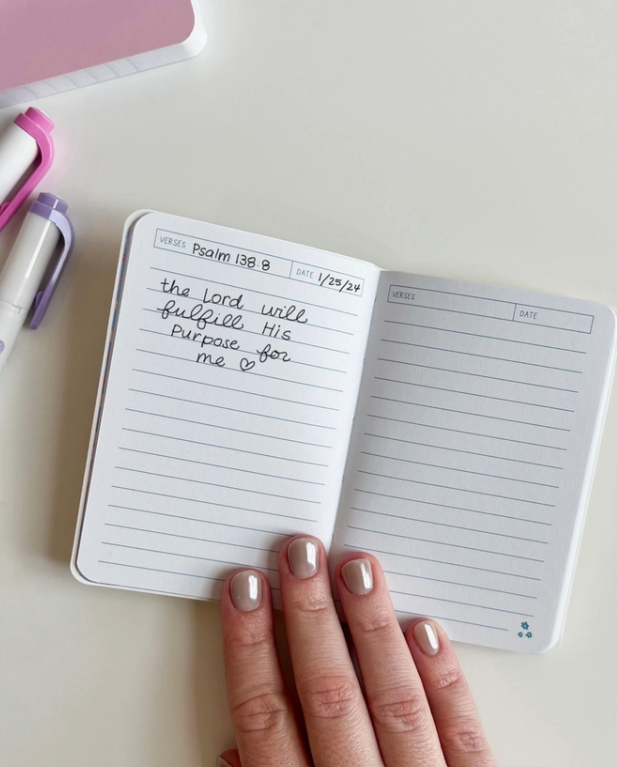 VERSES Psalm 138:8 DATE 1/25/24
the Lord will
fulfill His
purpose for
me ♡
VERSES DATE